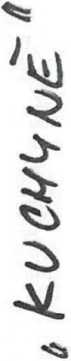 „KUCHYNĚ"